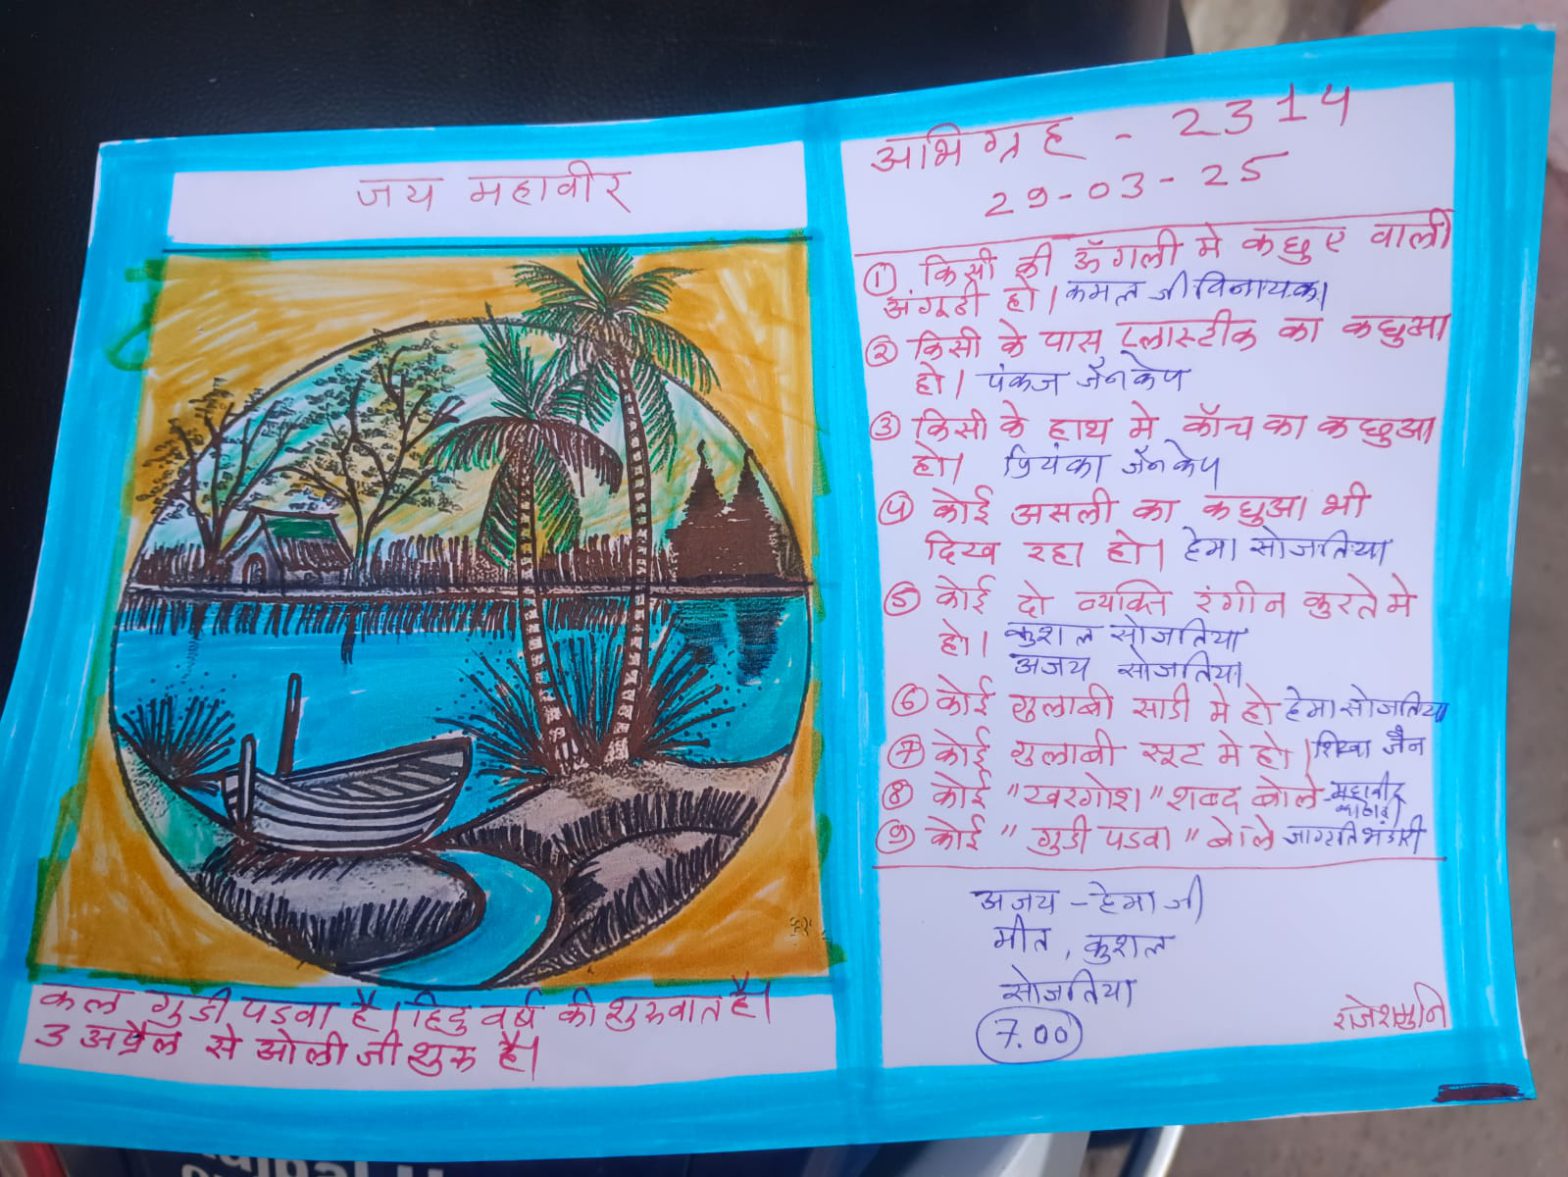 जय महावीर
कल गुडी पडवा है। हिंदु वर्ष की शुरुवात है।
3 अप्रैल से ओली जी शुरु है।
अभिग्रह - 2314
29-03-25
① किसी की ऊँगली मे कछुए वाली
अंगूठी हो। कमल जी विनायका
② किसी के पास प्लास्टीक का कछुआ
हो। पंकज जैन केप
③ किसी के हाथ मे काँच का कछुआ
हो। प्रियंका जैन केप
④ कोई असली का कछुआ भी
दिख रहा हो। हेमा सोजतिया
⑤ कोई दो व्यक्ति रंगीन कुरते मे
हो। कुशल सोजतिया
अजय सोजतिया
⑥ कोई गुलाबी साडी मे हो हेमा सोजतिया
⑦ कोई गुलाबी सूट मे हो। शिखा जैन
⑧ कोई "खरगोश" शब्द बोले महावीर
⑨ कोई "गुडी पडवा" बोले जागृति भंडारी
अजय - हेमा जी
मीत, कुशल
सोजतिया
7.00
राजेशमुनि